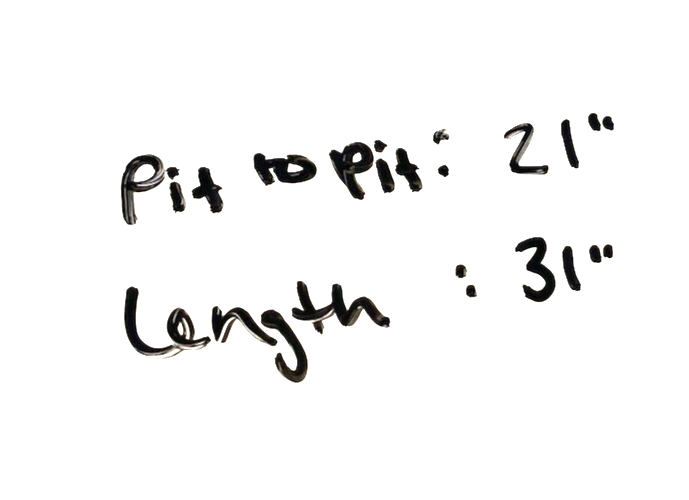 Pit to Pit: 21"
Length : 31"